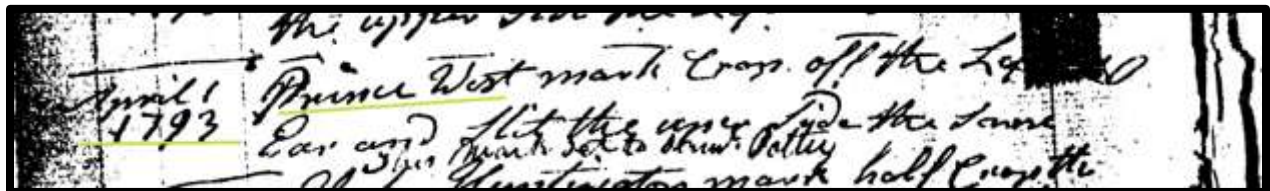 the upper side the
April 1 Prince West mark Crop off the Lef
1793 Ear and Slit the under Side the Same
this mark set to
Huntington mark half Crop the